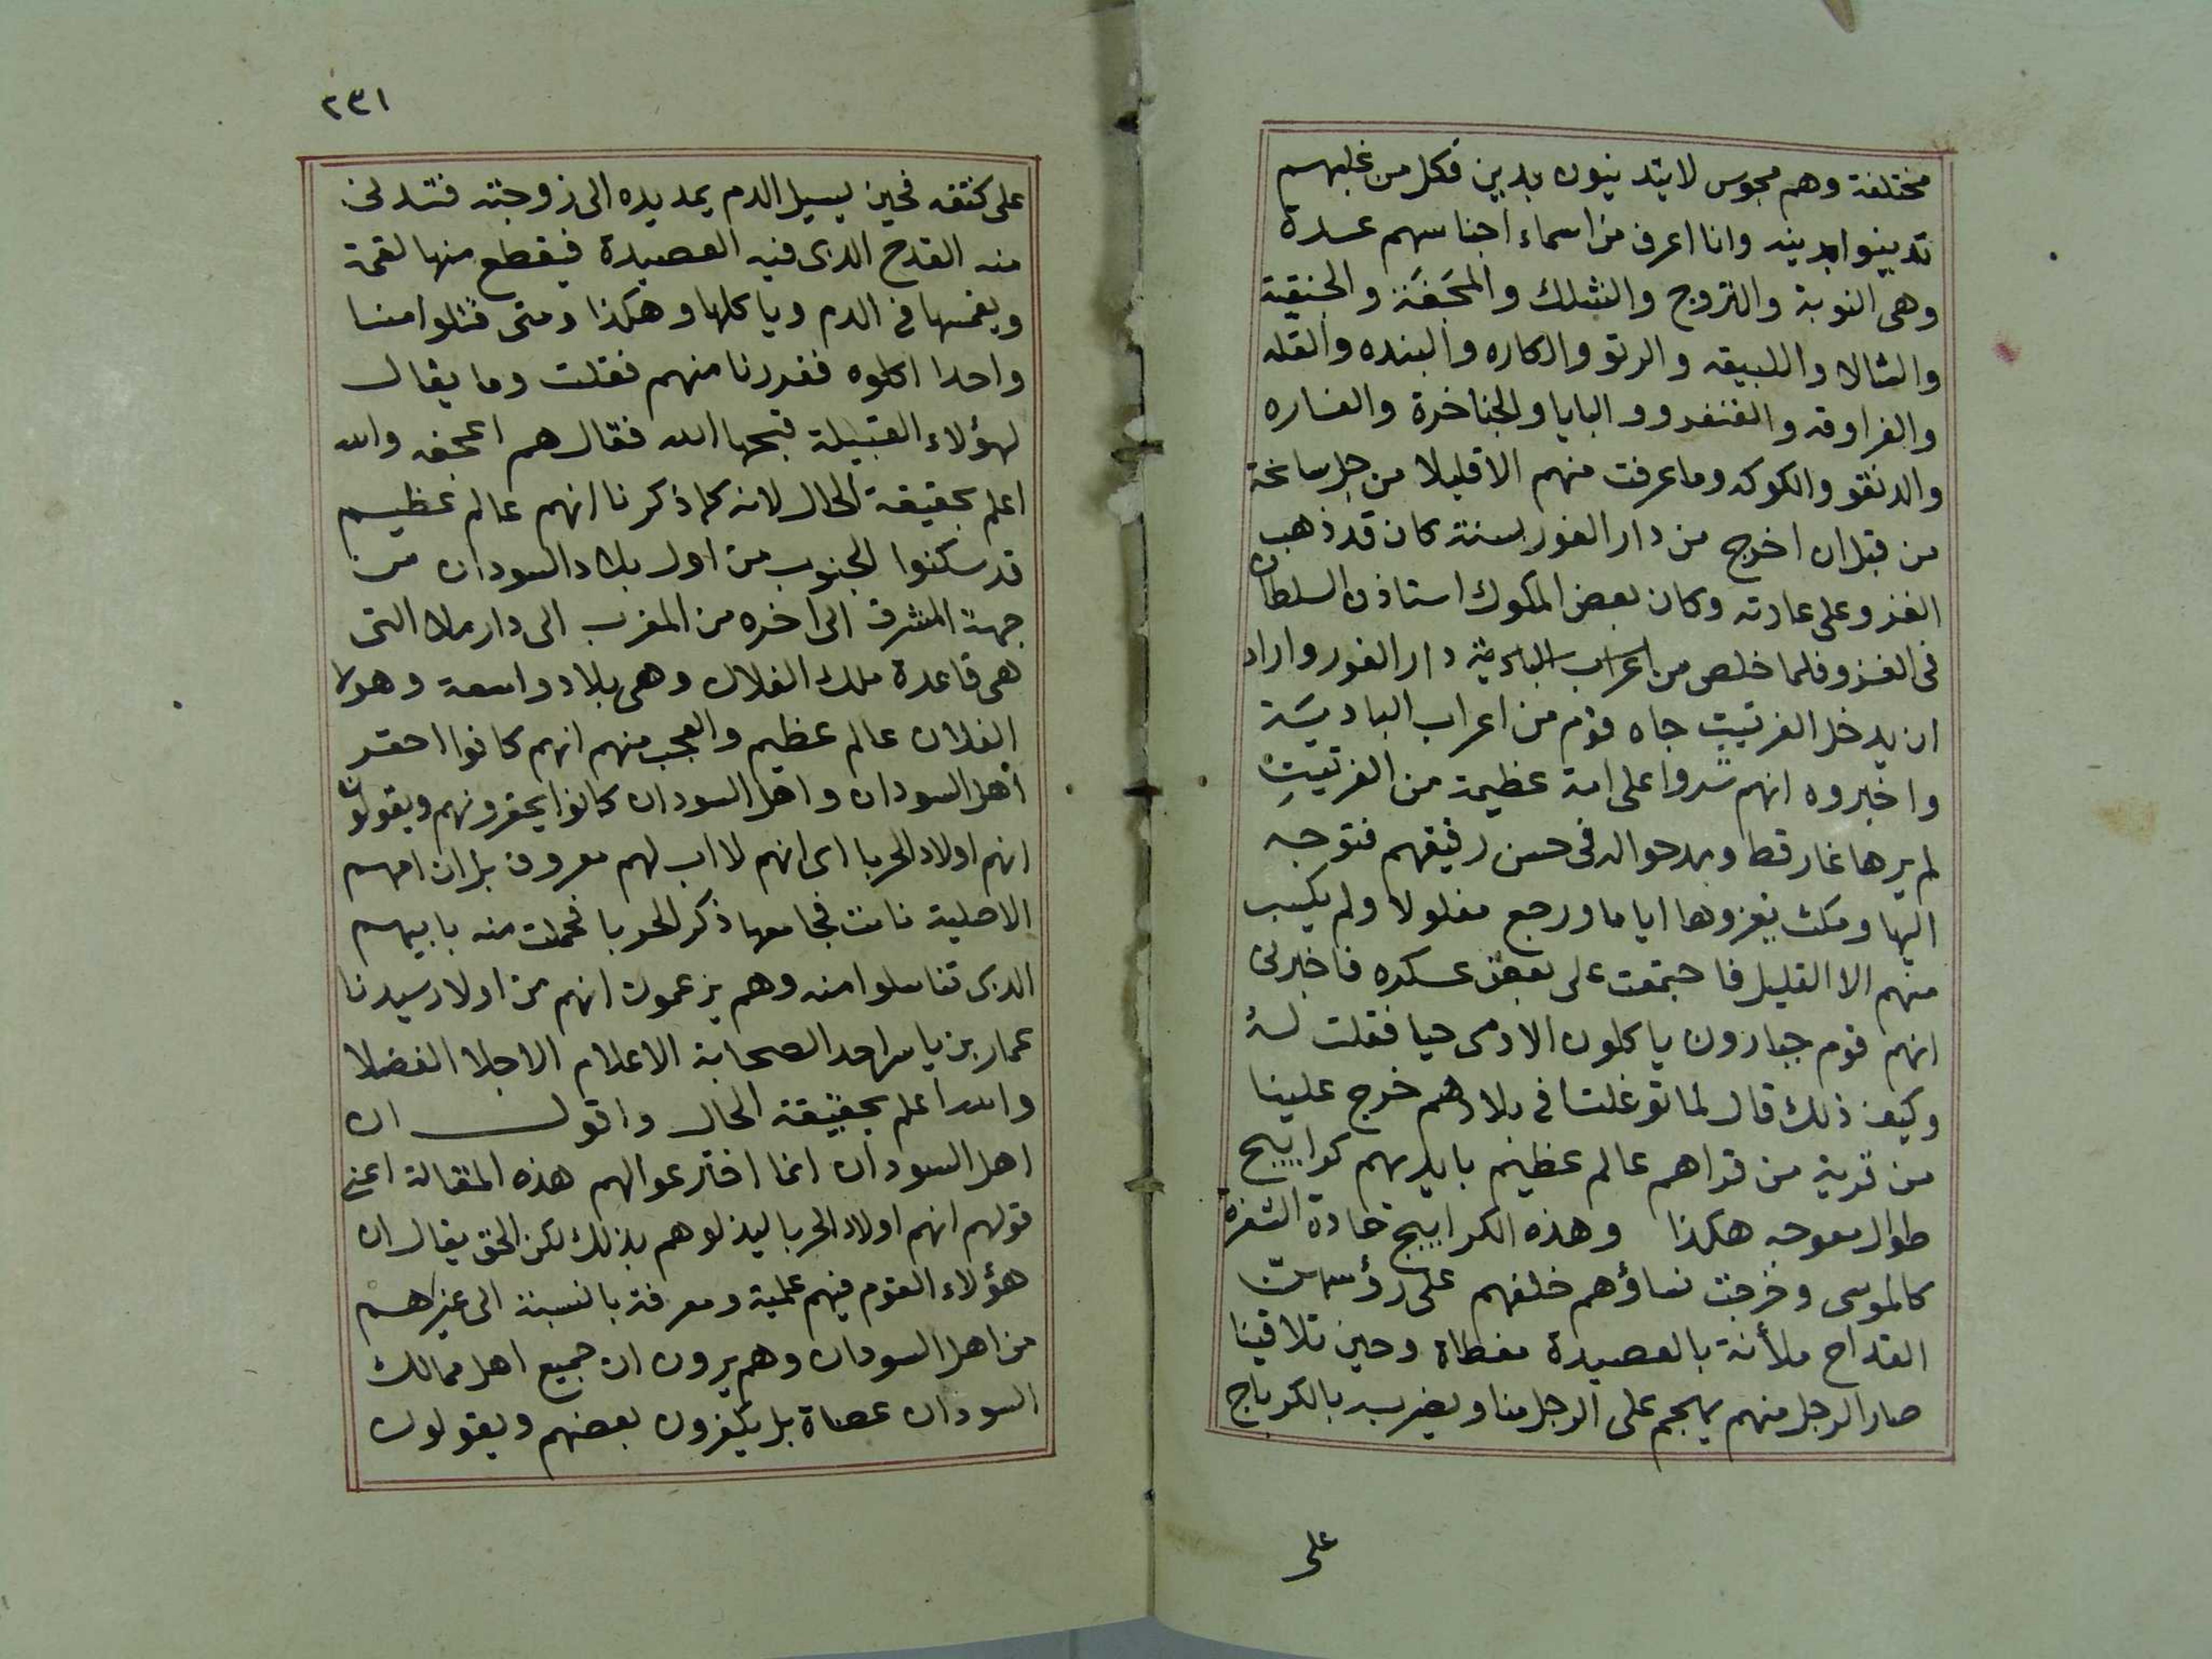 مختلفة وهم مجوس لا يتدينون بدين فكل من غلبهم
تدينوا بدينه وانا اعرف من اسماء اجناسهم عدة
وهى النوبة والتروج والشلك والجنقية
والشالا واللبيقه والرتو والكاره والبنده والقله
والفراوقه والفنفرو والبايا والجناخرة والفاره
والدنقو والكوكه وما عرفت منهم الا قليلا من
من قبل ان اخرج من دار الفور بسنة كان قد ذهب
الغزو على عادته وكان بعض الملوك استاذن السلطان
فى الغزو فلما خلص من اعراب البادية دار الفور واراد
ان يدخل الفرتيت جاه قوم من اعراب البادية
واخبروه انهم شدوا على امة عظيمة من الفرتيت
لم يرها غاز قط ومدحوا له فى حسن رقيقهم فتوجه
اليها ومكث يغزوها اياما ورجع مفلولا ولم يكسب
منهم الا القليل فاجتمعت على بعض عسكره فاخبرنى
انهم قوم جبارون ياكلون الادمى حيا فقلت له
وكيف ذلك قال لما توغلنا فى بلادهم خرج علينا
من قرية من قراهم عالم عظيم بايديهم كرابيج
طوال معوجه هكذا وهذه الكرابيج حادة الشفرة
كالموسى وخرجت نساؤهم خلفهم على رؤسهن
القداح ملأنة بالعصيدة مغطاة وحين تلاقينا
صار الرجل منهم يهجم على الرجل منا ويضرب بالكرباج
على
٢٣١
على كتفه فحين يسيل الدم يمد يده الى زوجته فتدلى
منه القدح الدى فيه العصيدة فيقطع منها لقمة
ويغمسها فى الدم وياكلها وهكذا ومتى قتلوا منا
واحدا اكلوه ففررنا منهم فقلت وما يقال
لهؤلاء القبيلة قبحها الله فقال هم اعجفه والله
اعلم بحقيقة الحال لانه كما ذكرنا انهم عالم عظيم
قد سكنوا الجنوب من اول بلاد السودان من
جهة المشرق الى اخره من المغرب الى دار ملا التى
هى قاعدة ملك الفلان وهى بلاد واسعة وهولا
الفلان عالم عظيم والعجب منهم انهم كانوا احقر
اهل السودان واهل السودان كانوا يحقرونهم ويقولون
انهم اولاد الحربا اى انهم لا اب لهم معروف بل ان امهم
الاصلية نامت فجامعها ذكر الحربا فحملت منه بابيهم
الدى تناسلوا منه وهم يزعمون انهم من اولاد سيدنا
عمار بن ياسر احد الصحابة الاعلام الاجلا الفضلا
والله اعلم بحقيقة الحال واقول ان
اهل السودان انما اخترعوا لهم هذه المقالة اعنى
قولهم انهم اولاد الحربا ليذلوهم بذلك لكن الحق يقال ان
هؤلاء القوم فيهم علمية ومعرفة بالنسبة الى غيرهم
من اهل السودان وهم يرون ان جميع اهل ممالك
السودان عصاة بل يكفرون بعضهم ويقولون